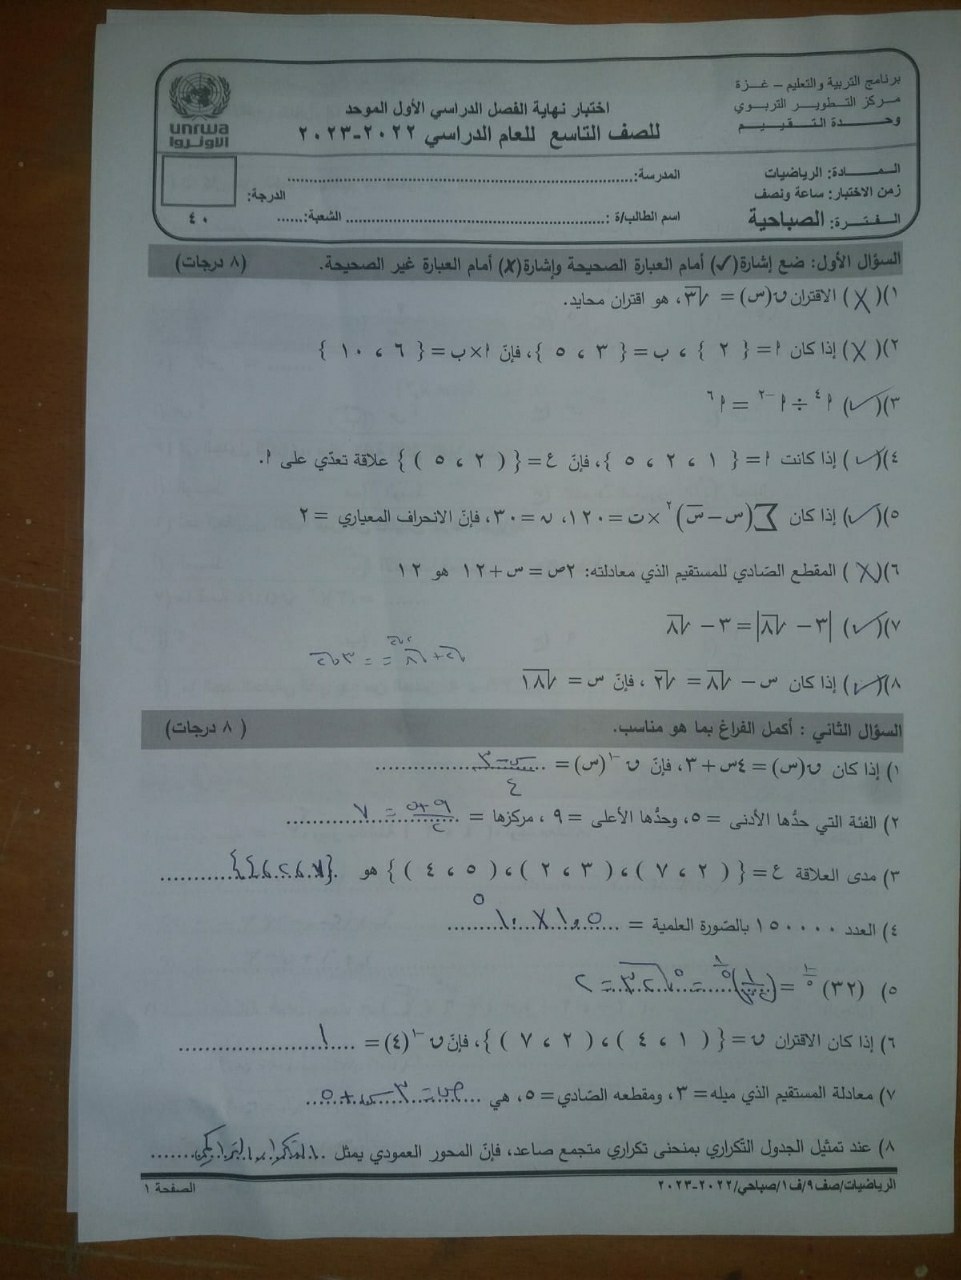 برنامج التربية والتعليم – غزة
مركز التطوير التربوي
وحدة التقييم
اختبار نهاية الفصل الدراسي الأول الموحد
للصف التاسع للعام الدراسي ٢٠٢٢-٢٠٢٣
unrwa
الأونروا
المادة: الرياضيات
زمن الاختبار: ساعة ونصف
الفترة: الصباحية
المدرسة:....................
اسم الطالب/ة :.................... الشعبة:......
الدرجة:
٤٠
السؤال الأول: ضع إشارة(✓) أمام العبارة الصحيحة وإشارة(✗) أمام العبارة غير الصحيحة. (٨ درجات)
١)(✗) الاقتران ق(س)= √٣، هو اقتران محايد.
٢)(✗) إذا كان أ= { ٢ } ، ب= { ٣ ، ٥ }، فإنّ أ×ب= { ٦ ، ١٠ }
٣)(✓) أ^٤ ÷ أ^-٢ = أ^٦
٤)(✓) إذا كانت أ= { ١ ، ٢ ، ٥ }، فإنّ ع= { ( ٢ ، ٥ ) } علاقة تعدّي على أ.
٥)(✓) إذا كان ∑(س-س̄)^٢ ×ت= ١٢٠، ن= ٣٠، فإنّ الانحراف المعياري = ٢
٦)(✗) المقطع الصّادي للمستقيم الذي معادلته: ٢ص= س+١٢ هو ١٢
٧)(✓) |٣- √٨|= ٣ - √٨
√٢+ √٨ = = ٣√٢
٢√٢
٨)(✓) إذا كان س- √٨= √٢ ، فإنّ س= √١٨
السؤال الثاني : أكمل الفراغ بما هو مناسب. ( ٨ درجات)
١) إذا كان ق(س)= ٤س+٣، فإنّ ق^-١(س)= (س-٣)/٤
٢) الفئة التي حدُّها الأدنى = ٥، وحدُّها الأعلى = ٩ ، مركزها = (٩+٥)/٢ = ٧
٣) مدى العلاقة ع= { ( ٢ ، ٧ )،( ٣ ، ٢ )،( ٥ ، ٤ ) } هو {٧،٢،٤}
٤) العدد ١٥٠٠٠٠ بالصّورة العلمية = ١,٥ × ١٠^٥
٥) (٣٢)^-١/٥ = (١/٣٢)^١/٥ = ٥√٣٢ = ٢
٦) إذا كان الاقتران ق= { ( ١ ، ٤ )،( ٢ ، ٧ ) }، فإنّ ق^-١(٤)= ١
٧) معادلة المستقيم الذي ميله= ٣، ومقطعه الصّادي= ٥، هي ص=٣س+٥
٨) عند تمثيل الجدول التّكراري بمنحنى تكراري متجمع صاعد، فإنّ المحور العمودي يمثل التكرار التراكمي
الرياضيات/صف٩/ف١/صباحي/٢٠٢٢-٢٠٢٣
الصفحة ١